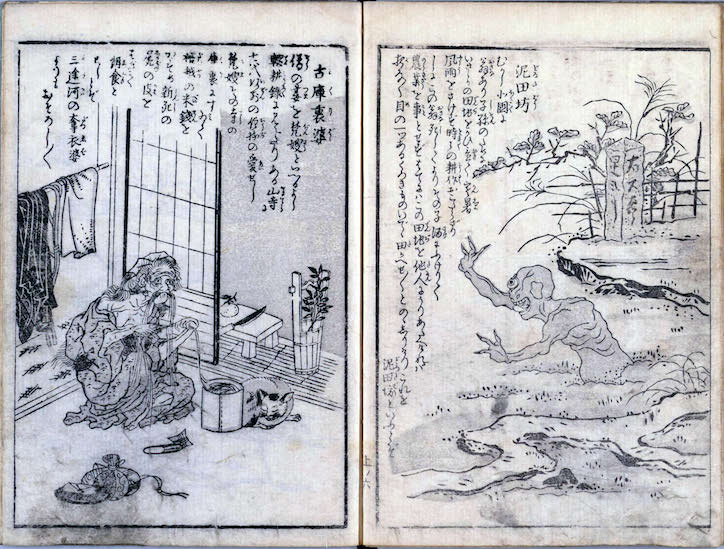 泥田坊
むかし北国に
翁あり子孫のために
いさゝかの田地をかひ置て寒暑
風雨をさけず時々の耕作おこたらざり
しにこの翁死してよりその子酒にふけりて
農業を事とせずはてにはこの田地を他人にうりあたへければ
夜な〳〵目の一つあるくろきものいでゝ田かへせ〳〵とのゝしりけりこれを
泥田坊といふとぞ
上ノ六
古庫裏婆
僧の妻を梵嫂といへるよし
輟耕録に見えたりある山寺に
七代以前の住持の愛せし
梵嫂その寺の
庫裏にすみゐて
檀越の米銭を
かすめ新死の
屍の皮を
はぎて
餌食と
せしとぞ
三途河の奪衣婆
よりも
おそろし〳〵